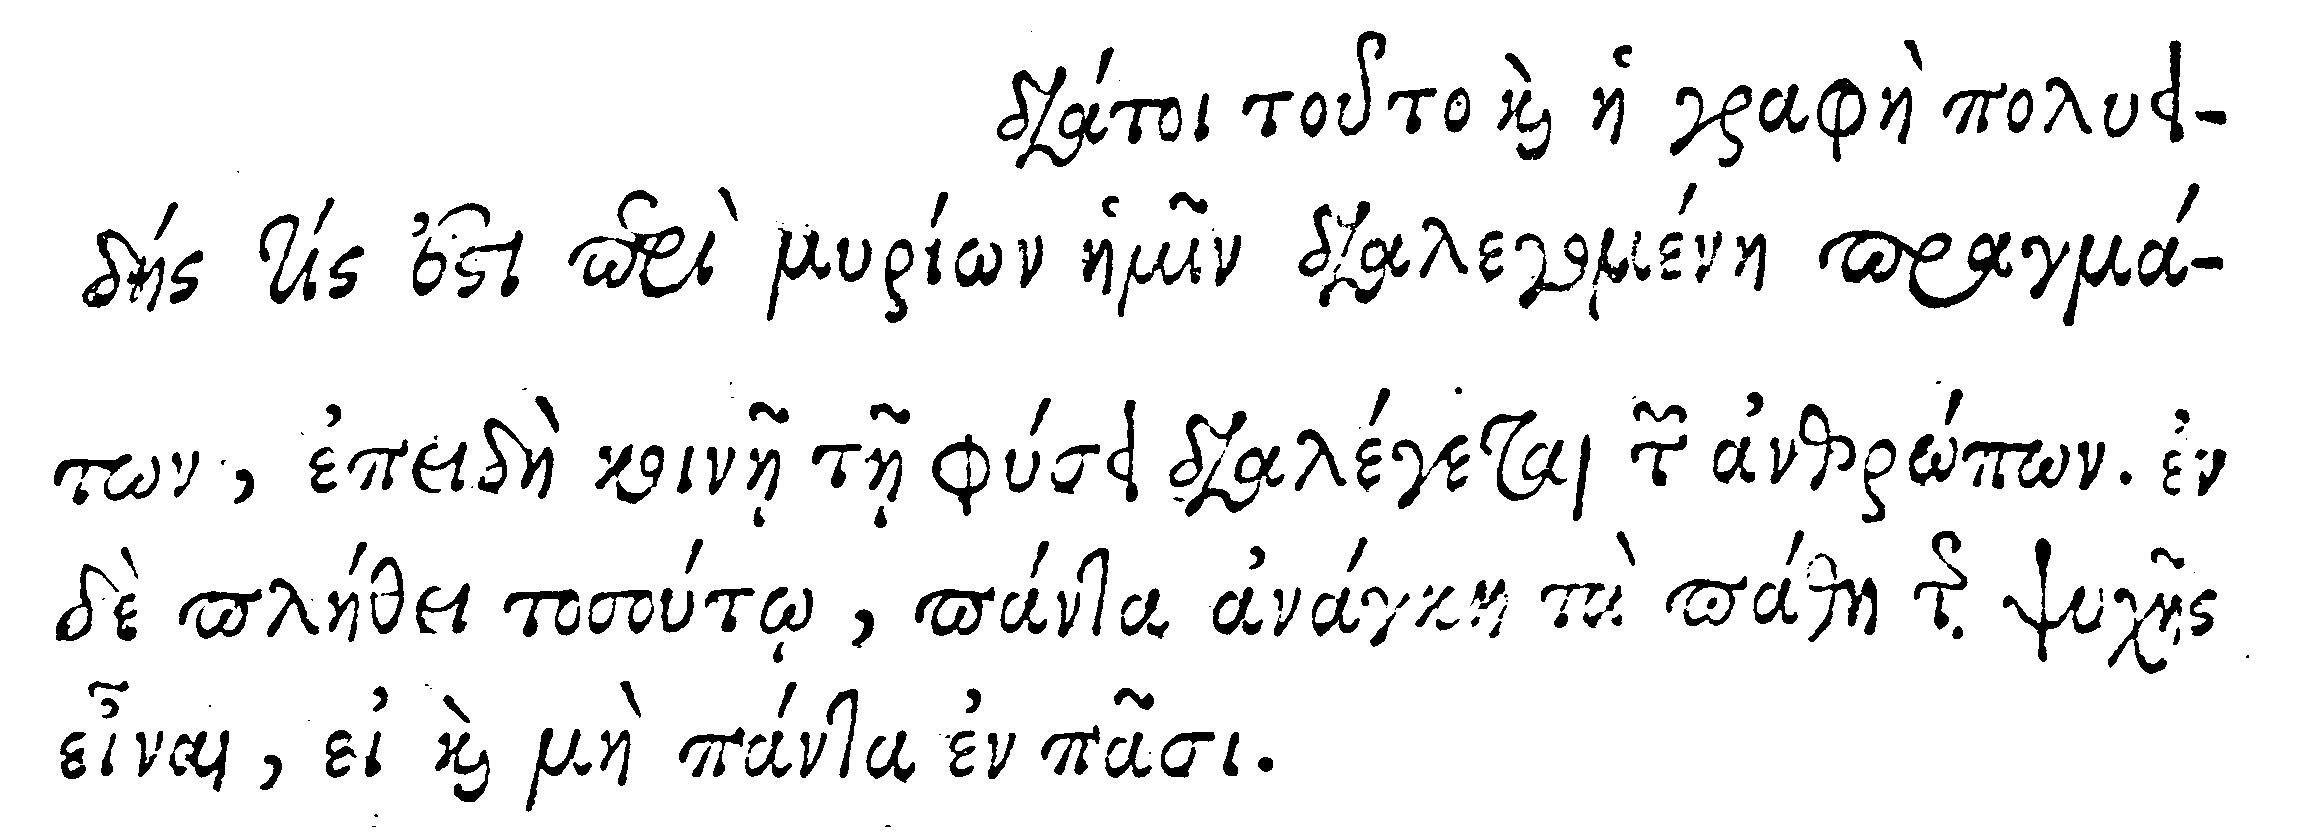 διάτοι τοῦτο καὶ ἡ γραφὴ πολυει-
δής τίς ἐστι περὶ μυρίων ἡμῖν διαλεγομένη πραγμά-
των, ἐπειδὴ κοινῇ τῇ φύσει διαλέγεται τῶν ἀνθρώπων. ἐν
δὲ πλήθει τοσούτῳ, πάντα ἀνάγκη τὰ πάθη τῆς ψυχῆς
εἶναι, εἰ καὶ μὴ πάντα ἐν πᾶσι.